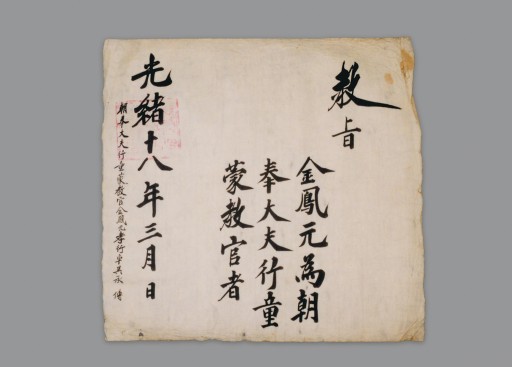 教旨
金鳳元為朝
奉大夫行童
蒙教官者
光緒十八年三月 日
朝奉大夫行童蒙教官金鳳元孝行卓異承 傳